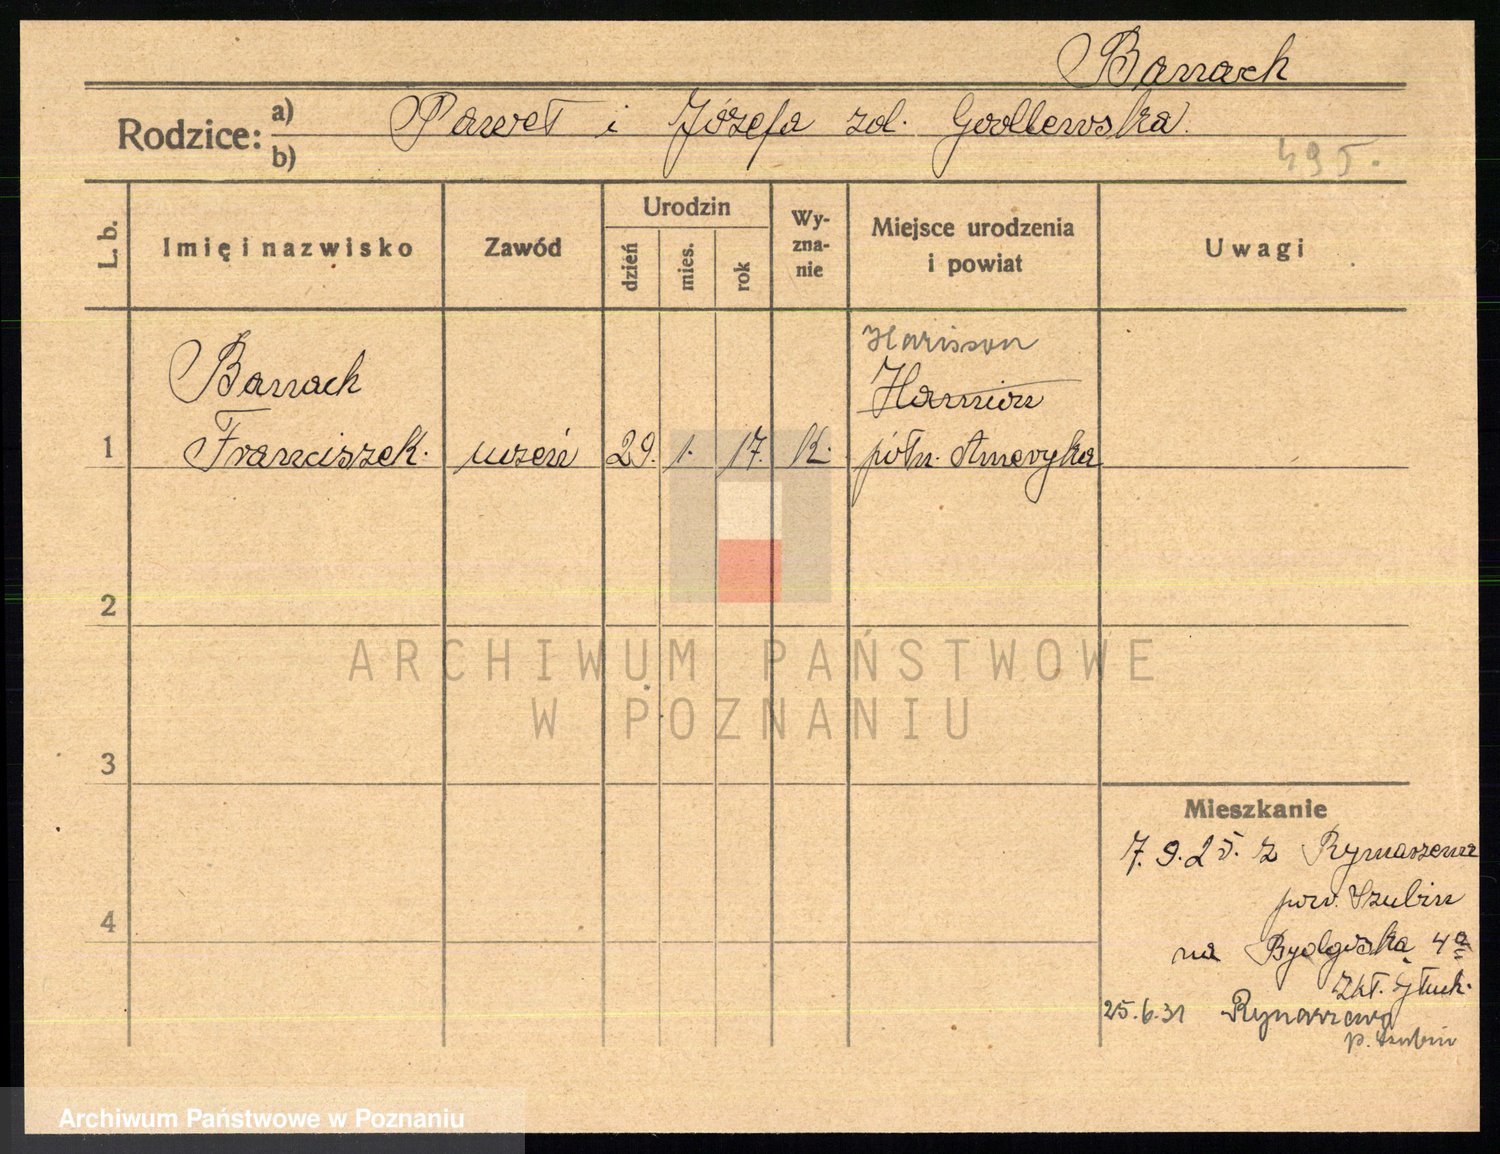 Barrach
Rodzice: a) Paweł i Józefa zd. Godlewska.
b)
495.
L. b. Imię i nazwisko Zawód Urodzin dzień mies. rok Wyzna-nie Miejsce urodzenia i powiat Uwagi
Harisson
Barrach Harrison
1 Franciszek. uczeń 29. 1. 17. K. półn. Ameryka
2
ARCHIWUM PAŃSTWOWE
W POZNANIU
3
Mieszkanie
7.9.25. z Rynarzewa
pow. Szubin
4
na Bydgoską 4a
Zkł. Głuch.
25.6.31 Rynarzewo
p. Szubin
Archiwum Państwowe w Poznaniu